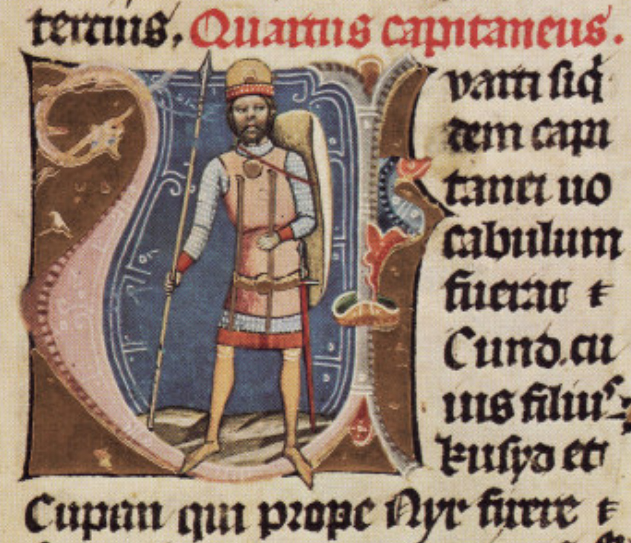 tercius. Quartus capitaneus.
varti siqͥ
dem capi
tanei uo
cabulum
fuerat ⁊
Cund. cu
ius filiuˢ
kusyd et
Cupan qui prope Nyr fuere ⁊